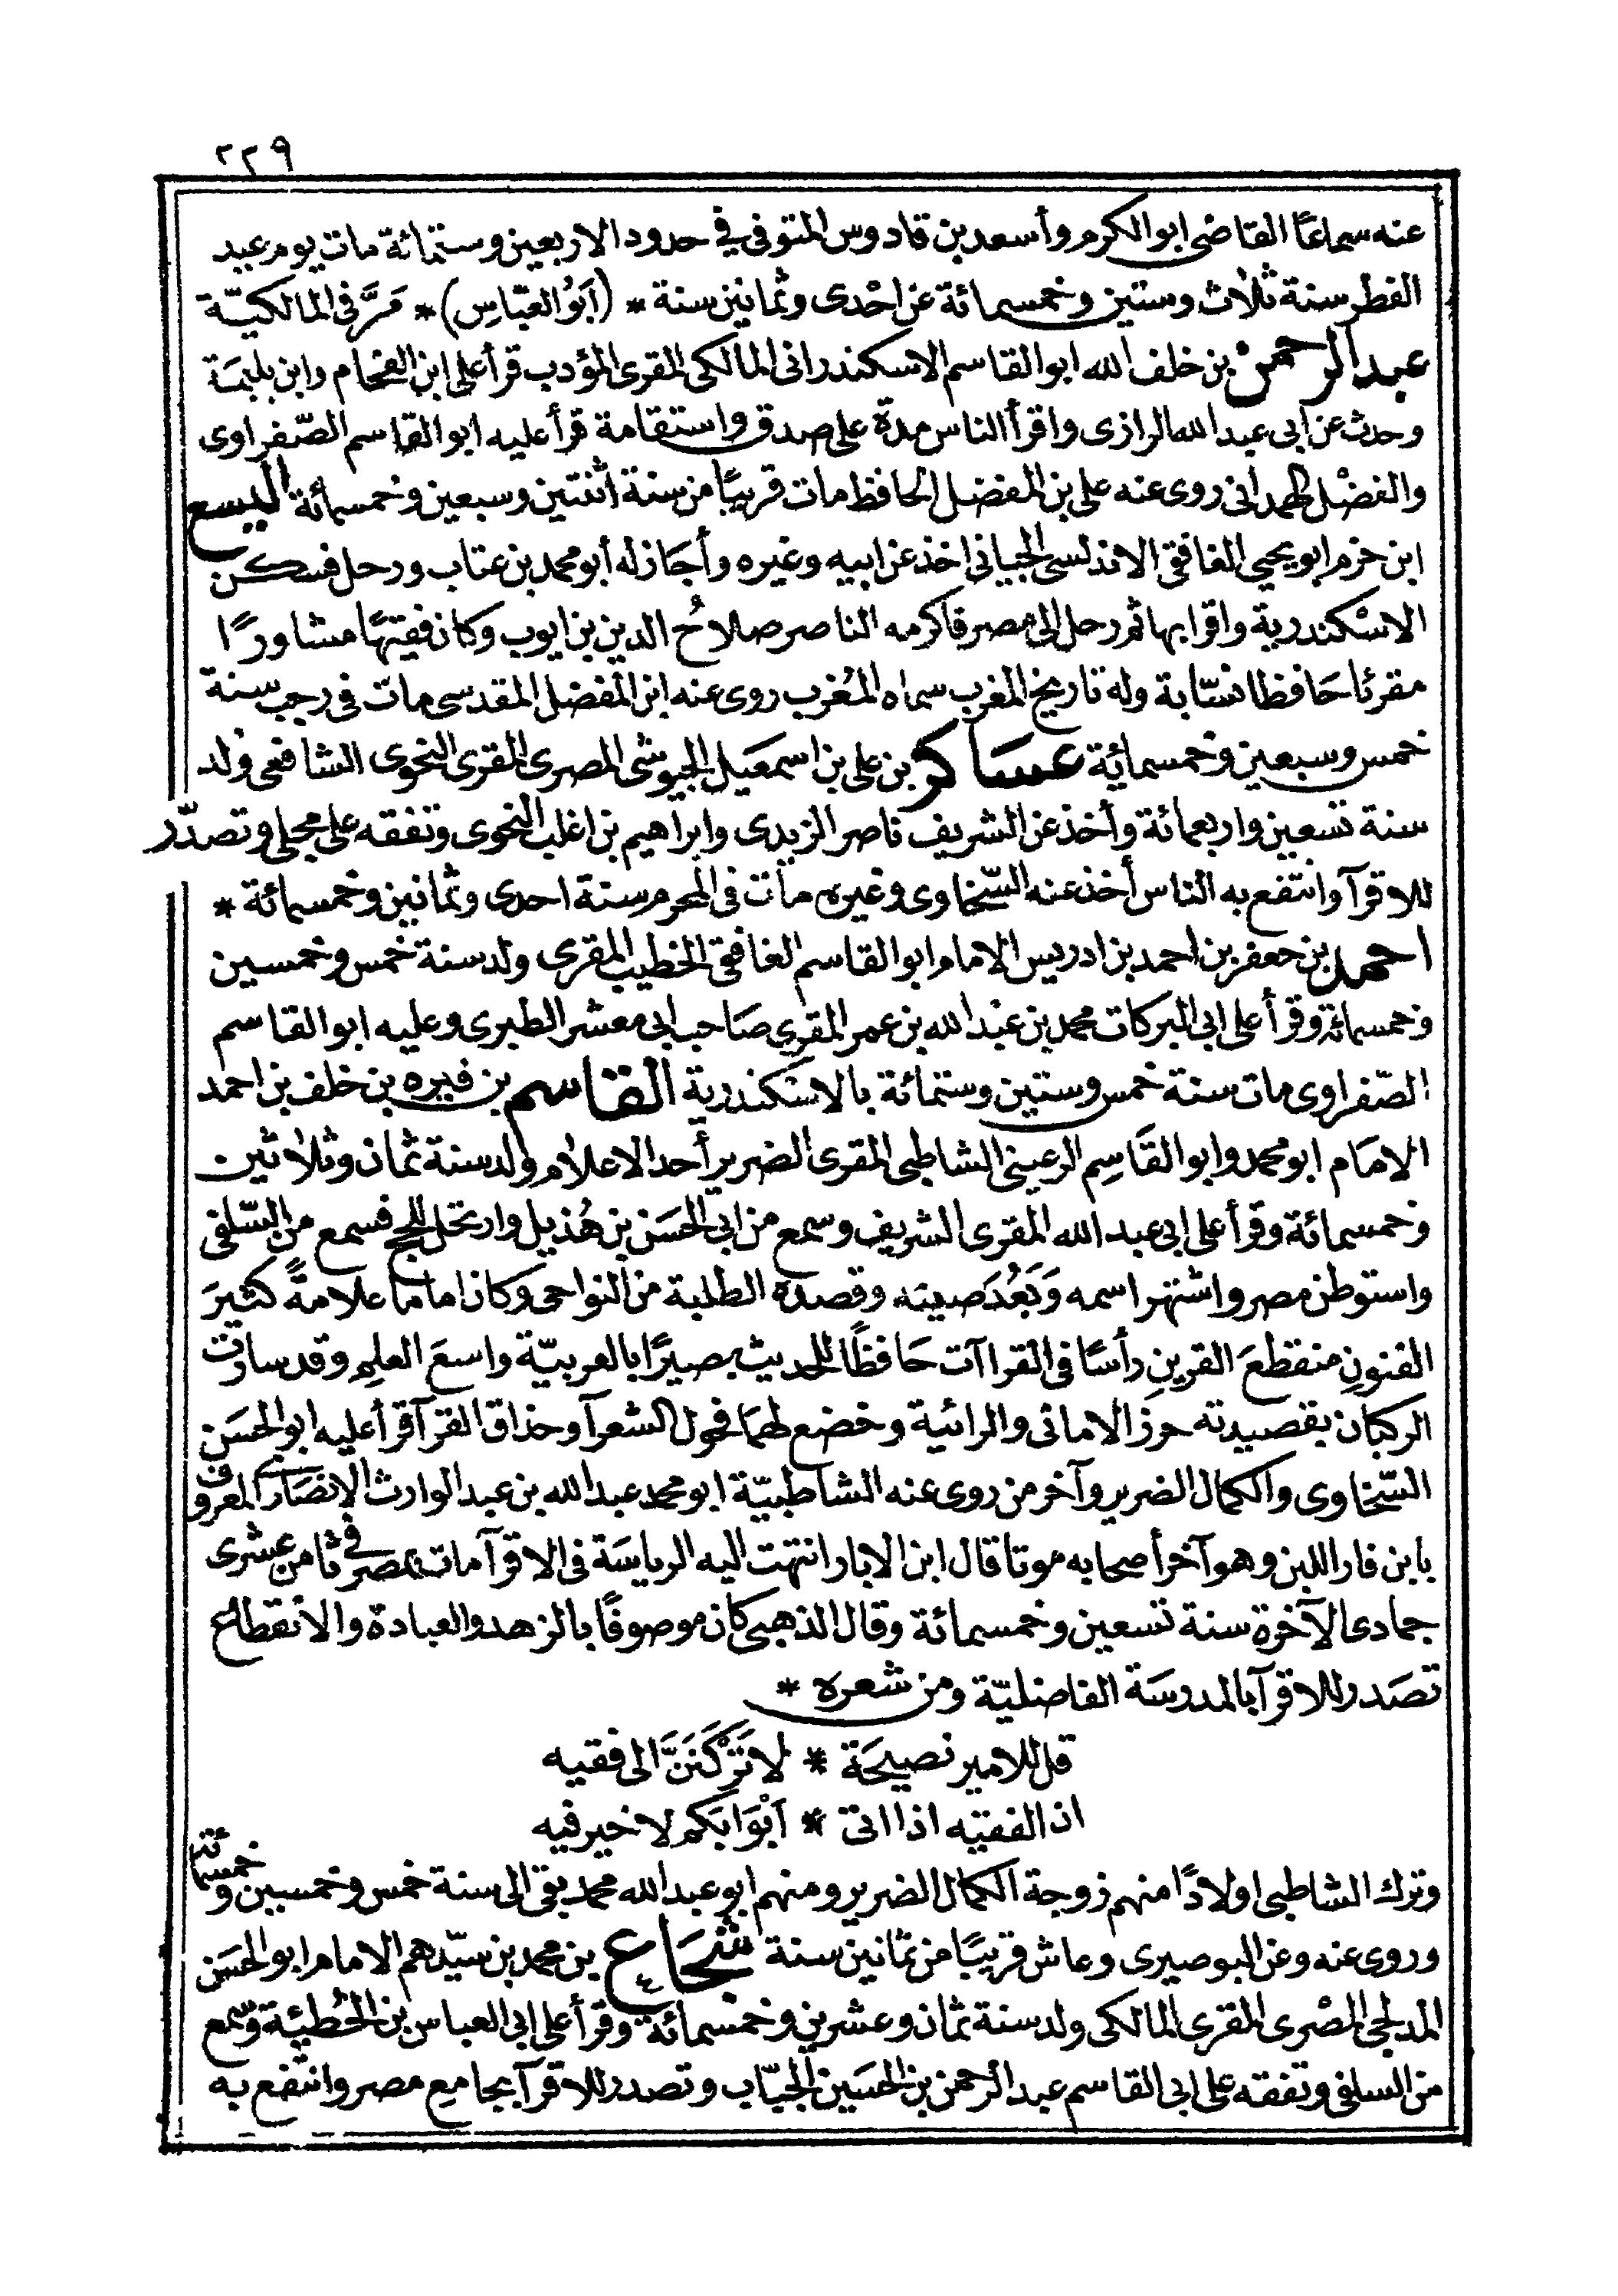 ٢٢٩
عنه سماعًا القاضى ابو الكرم وأسعد بن قادوس المتوفى فى حدود الاربعين وستمائة مات يوم عيد
الفطر سنة ثلاث وستين وخمسمائة عن احْدى وثمانين سنة * (اَبُو العبّاسِ) * مَرَّ فى المالكيّة
عبد الرحمن بن خلف الله ابو القاسم الاسكندرانى المالكى المقرى المؤدب قرأ على ابن الفحام وابن بليمَة
وحدث عن ابى عبد الله الرازى واقرأ الناس مدة على صدق واستقامة قرأ عليه ابو القاسم الصّفراوى
والفضْل الهمدانى روى عنه على بن المفضل الحافظ مات قريبًا من سنة اثنتين وسبعين وخمسمائة اليسع
ابن حزم ابو يحيى الغافقى الاندلسى الجيانى اخذ عن ابيه وغيره وأجَاز له أبو محمد بن عتاب ورحل فسكن
الاسْكندرية واقرا بها ثم رحل الى مصر فاكرمه الناصر صلاحُ الدين بن ايوب وكان فقيهًا مشاورًا
مقرئا حَافظا نسّابة وله تاريخ المغرب سماه المُغرب روى عنه ابن المفضل المقدسى مات فى رجب سنة
خمس وسبعين وخمسمائة عسَاكر بن على بن اسمعيل الجيوشى المصرى المقرى النحوى الشافعى ولد
سنة تسعين واربعمائة وأخذ عن الشريف ناصر الزيدى وابراهيم بن اغلب النحوى وتفقه على مجلى وتصدّر
للاقرآ وانتفع به الناس أخذ عنه السّخاوى وغيره مات فى المحرم سنة احدى وثمانين وخمسمائة *
احمد بن جعفر بن احمد بن ادريس الامام ابو القاسم الغافقى الخطيب المقرى ولد سنة خمس وخمسين
وخمسمائة وقرأ على ابى البركات محمد بن عبْد الله بن عمر المقرى صَاحب ابى معشر الطبرى وعليه ابو القاسم
الصّفراوى مات سنة خمس وستين وستمائة بالاسْكندرية القاسم بن فيره بن خلف بن احمد
الامَام ابو محمد وابو القَاسِم الرعينى الشاطبى المقرى الضرير أحد الاعلام ولد سنة ثمان وثلاثين
وخمسمائة وقرأ على ابى عبد الله المقرى الشريف وسمع من ابى الحسَن بن هُذيل وارتحل للحج فسمع من السّلفى
واستوطن مصر واشتهر اسمه وَبَعُدَ صيته وقصده الطلبة من النواحى وكان اماما علامةً كثيرَ
الفنونِ منقطعَ القرينِ رأسًا فى القراآت حَافظًا للحديث بصيرًا بالعربيّة واسعَ العلمِ وقد سارت
الركبان بقصيدته حرز الامانى والرائية وخضع لهمَا فحول الشعرآ وحذاق القرآ قرأ عليه ابو الحسَن
السّخاوى والكمال الضرير وآخر من روى عنه الشاطبيّة ابو محمد عبد الله بن عبد الوارث الانصَارى المعروف
بابن فار اللبن وهو آخر أصحابه موتا قال ابن الابار انتهت اليه الرياسَة فى الاقرآ مات بمصر فى ثامن عشرى
جمادى الآخرة سنة تسعين وخمسمائة وقال الذهبى كان موصوفًا بالزهد والعبادة والانقطاع
تصَدر للاقرآ بالمدرسَة الفاضليّة ومن شعره *
قل للامير نصيحَة * لا تَرْكَنَنَّ الى فقيه
ان الفقيه اذا اتى * اَبْوَابَكم لا خير فيه
وترك الشاطبى اولادًا منهم زوجة الكمال الضرير ومنهم ابو عبد الله محمد بقى الى سنة خمس وخمسين وخمسمائة
وروى عنه وعن البوصيرى وعاش قريبًا من ثمانين سنة شجَاع بن محمد بن سيّدهم الامام ابو الحسَن
المدلجى المصْرى المقرى المالكى ولد سنة ثمان وعشرين وخمسمائة وقرأ على ابى العباس بن الحُطيئة وسّمع
من السلفى وتفقه على ابى القاسم عبد الرحمن بن الحسَين الجبّاب وتصدر للاقرآ بجامع مصر وانتفع به